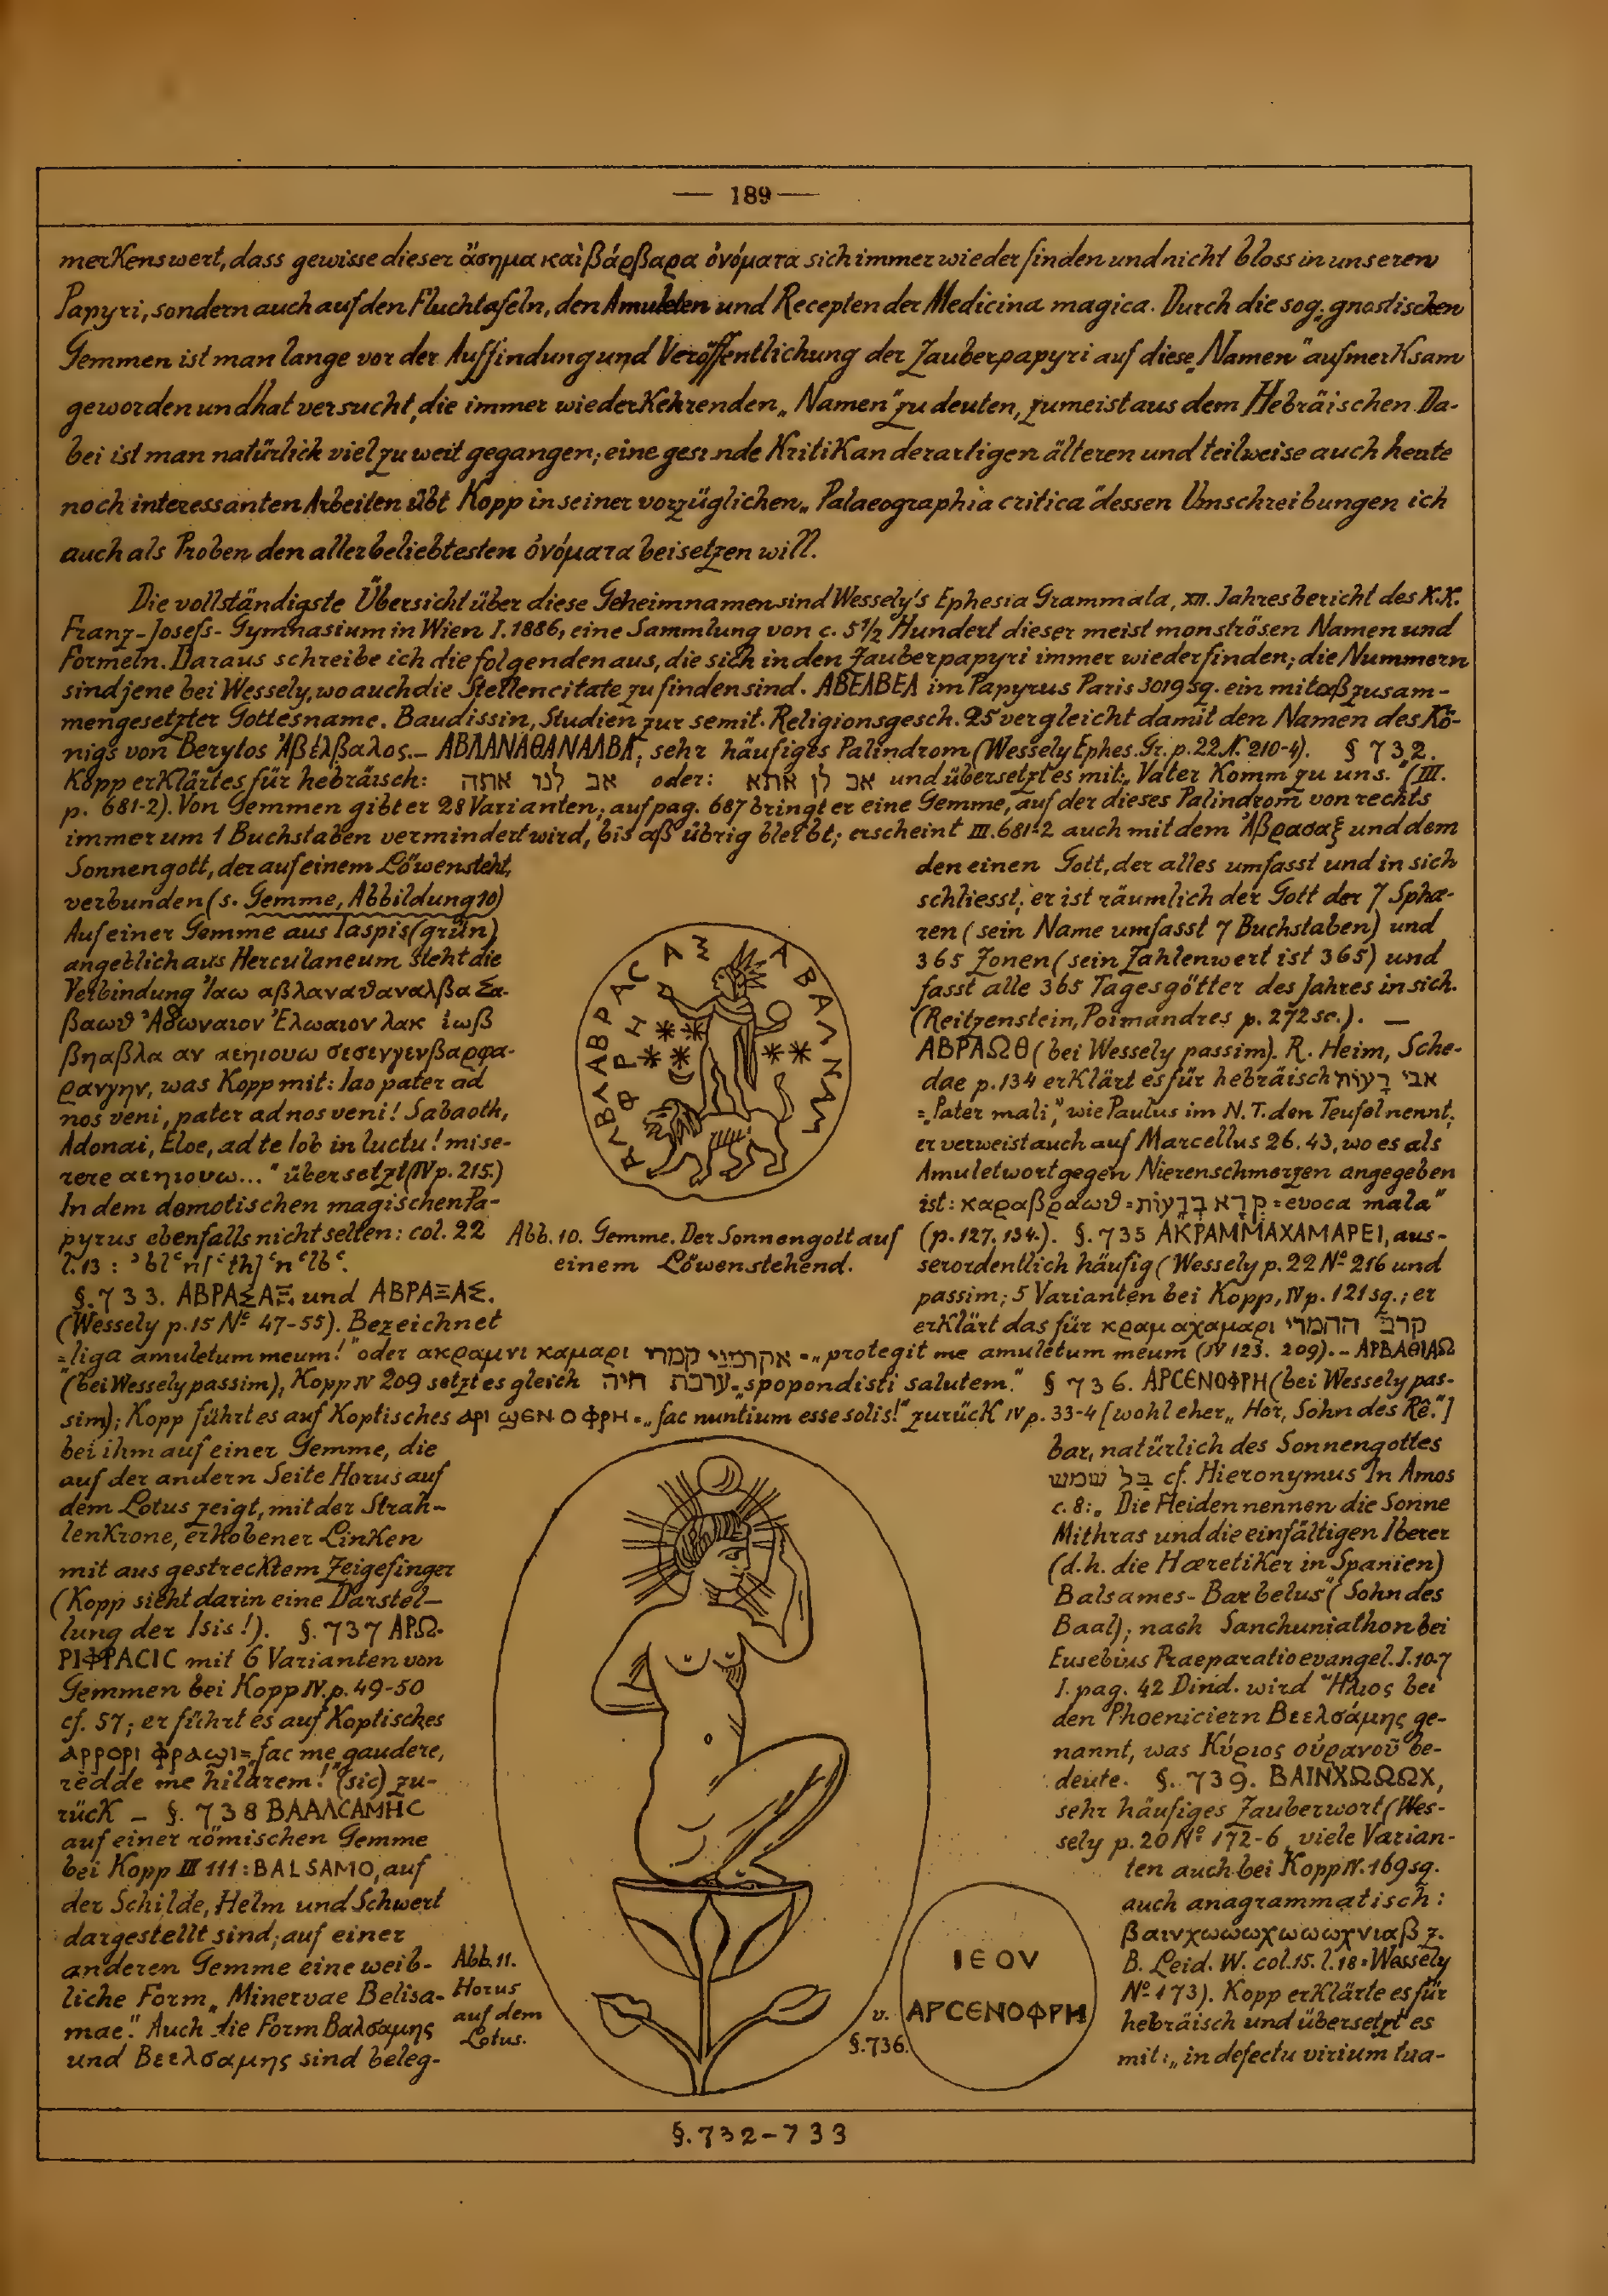 — 189 —
merkenswert, dass gewisse dieser ἄσημα καὶ βάρβαρα ὀνόματα sich immer wieder finden und nicht bloss in unseren
Papyri, sondern auch auf den Fluchtafeln, den Amuleten und Recepten der Medicina magica. Durch die sog. gnostischen
Gemmen ist man lange vor der Auffindung und Veröffentlichung der Zauberpapyri auf diese „Namen" aufmerksam
geworden und hat versucht, die immer wiederkehrenden „Namen" zu deuten, zumeist aus dem Hebräischen. Da-
bei ist man natürlich viel zu weit gegangen; eine gesunde Kritik an derartigen älteren und teilweise auch heute
noch interessanten Arbeiten übt Kopp in seiner vorzüglichen „Palaeographia critica" dessen Umschreibungen ich
auch als Proben den allerbeliebtesten ὀνόματα beisetzen will.
Die vollständigste Übersicht über diese Geheimnamen sind Wessely's Ephesia Grammata, XII. Jahresbericht des K.K.
Franz-Josefs-Gymnasium in Wien I. 1886, eine Sammlung von c. 5½ Hundert dieser meist monströsen Namen und
Formeln. Daraus schreibe ich die folgenden aus, die sich in den Zauberpapyri immer wieder finden; die Nummern
sind jene bei Wessely, wo auch die Stellencitate zu finden sind. ΑΒΕΛΒΕΛ im Papyrus Paris 3019 sq. ein mit αβ zusam-
mengesetzter Gottesname. Baudissin, Studien zur semit. Religionsgesch. 25 vergleicht damit den Namen des Kö-
nigs von Berytos Ἀβέλβαλος. – ΑΒΛΑΝΑΘΑΝΑΛΒΑ, sehr häufiges Palindrom (Wessely Ephes. Gr. p. 22 N. 210-4). § 732.
Kopp erklärt es für hebräisch: אב לנו אתה oder: אב לן אתא und übersetzt es mit: „Vater komm zu uns." (III.
p. 681-2). Von Gemmen gibt er 28 Varianten; auf pag. 687 bringt er eine Gemme, auf der dieses Palindrom von rechts
immer um 1 Buchstaben vermindert wird, bis αβ übrig bleibt; erscheint III. 681-2 auch mit dem Ἀβρασαξ und dem
Sonnengott, der auf einem Löwen steht,
verbunden (s. Gemme, Abbildung 10)
Auf einer Gemme aus Iaspis (grün),
angeblich aus Herculaneum steht die
Verbindung Ἰαω αβλαναθαναλβα Σα-
βαωθ Ἀδωναιον Ἐλωαιον λακ ἰωβ
βηαβλα αν αεηιουω σεσενγενβαρφα-
ρανγην, was Kopp mit: Iao pater ad
nos veni, pater ad nos veni! Sabaoth,
Adonai, Eloe, ad te lob in luctu! mise-
rere αεηιουω..." übersetzt (IV p. 215.)
In dem demotischen magischen Pa-
pyrus ebenfalls nicht selten: col. 22
§. 733. ΑΒΡΑΣΑΞ und ΑΒΡΑΞΑΣ.
(Wessely p. 15 Nº 47-55). Bezeichnet
ΑΒΡΑCΑΣ
Abb. 10. Gemme. Der Sonnengott auf
einem Löwen stehend.
den einen Gott, der alles umfasst und in sich
schliesst; er ist räumlich der Gott der 7 Sphä-
ren (sein Name umfasst 7 Buchstaben) und
365 Zonen (sein Zahlenwert ist 365) und
fasst alle 365 Tagesgötter des Jahres in sich.
(Reitzenstein, Poimandres p. 272 sc.). —
ΑΒΡΑΩΘ (bei Wessely passim). R. Heim, Sche-
dae p. 134 erklärt es für hebräisch אבי רָעוֹת
= „Pater mali", wie Paulus im N.T. den Teufel nennt;
er verweist auch auf Marcellus 26. 43, wo es als
Amuletwort gegen Nierenschmerzen angegeben
ist: καραβραωθ = קְרָא בְרָעוֹת = evoca mala"
(p. 127. 134.). §. 735 ΑΚΡΑΜΜΑΧΑΜΑΡΕΙ, aus-
serordentlich häufig (Wessely p. 22 Nº 216 und
passim; 5 Varianten bei Kopp, IV p. 121 sq.; er
erklärt das für κραμ αχαμαρι קרב ההמרי
= „liga amuletum meum!" oder ακραμνι καμαρι אקרמני קמרי = „protegit me amuletum meum (IV 123. 209). – ΑΡΒΑΘΙΑΩ
(bei Wessely passim), Kopp IV 209 setzt es gleich ערבת חיה = „spopondisti salutem." § 736. ΑΡCΕΝΟΦΡΗ (bei Wessely pas-
sim); Kopp führt es auf Koptisches ⲁⲣⲓ ϣⲉⲛⲟⲩϥⲣⲏ = „fac nuntium esse solis!" zurück IV p. 33-4 [wohl eher „Hor, Sohn des Rê."]
bei ihm auf einer Gemme, die
auf der andern Seite Horus auf
dem Lotus zeigt, mit der Strah-
lenkrone, erhobener Linken
mit ausgestrecktem Zeigefinger
(Kopp sieht darin eine Darstel-
lung der Isis!). §. 737 ΑΡΩ-
ΡΙΦΡΑCΙC mit 6 Varianten von
Gemmen bei Kopp IV. p. 49-50
cf. 57; er führt es auf Koptisches
ⲁⲣⲣⲟⲣⲓ ⲫⲣⲁϣⲓ = „fac me gaudere,
redde me hilarem!" (sic) zu-
rück – §. 738 ΒΑΑΛCΑΜΗC
auf einer römischen Gemme
bei Kopp III 111: BALSAMO, auf
der Schilde, Helm und Schwert
dargestellt sind; auf einer
anderen Gemme eine weib-
liche Form „Minervae Belisa-
mae." Auch die Form Βαλσαμης
und Βεελσαμης sind beleg-
Abb. 11.
Horus
auf dem
Lotus.
v.
§. 736.
ΙΕΟΥ
ΑΡCΕΝΟΦΡΗ
bar, natürlich des Sonnengottes
בַּל שמש cf. Hieronymus In Amos
c. 8: „Die Heiden nennen die Sonne
Mithras und die einfältigen Iberer
(d. h. die Hæretiker in Spanien)
Balsames-Barbelus" (Sohn des
Baal); nach Sanchuniathon bei
Eusebius Praeparatio evangel. I. 10. 7
I. pag. 42 Dind. wird Ἥλιος bei
den Phoeniciern Βεελσάμης ge-
nannt, was Κύριος οὐρανοῦ be-
deute. §. 739. ΒΑΙΝΧΩΩΩΧ,
sehr häufiges Zauberwort (Wes-
sely p. 20 Nº 172-6, viele Varian-
ten auch bei Kopp IV. 169 sq.
auch anagrammatisch:
βαινχωωωχωωωχνιαβ z.
B. Leid. W. col. 15. l. 18 = Wessely
Nº 173). Kopp erklärte es für
hebräisch und übersetzt es
mit: „in defectu virium tua-
§. 732–733